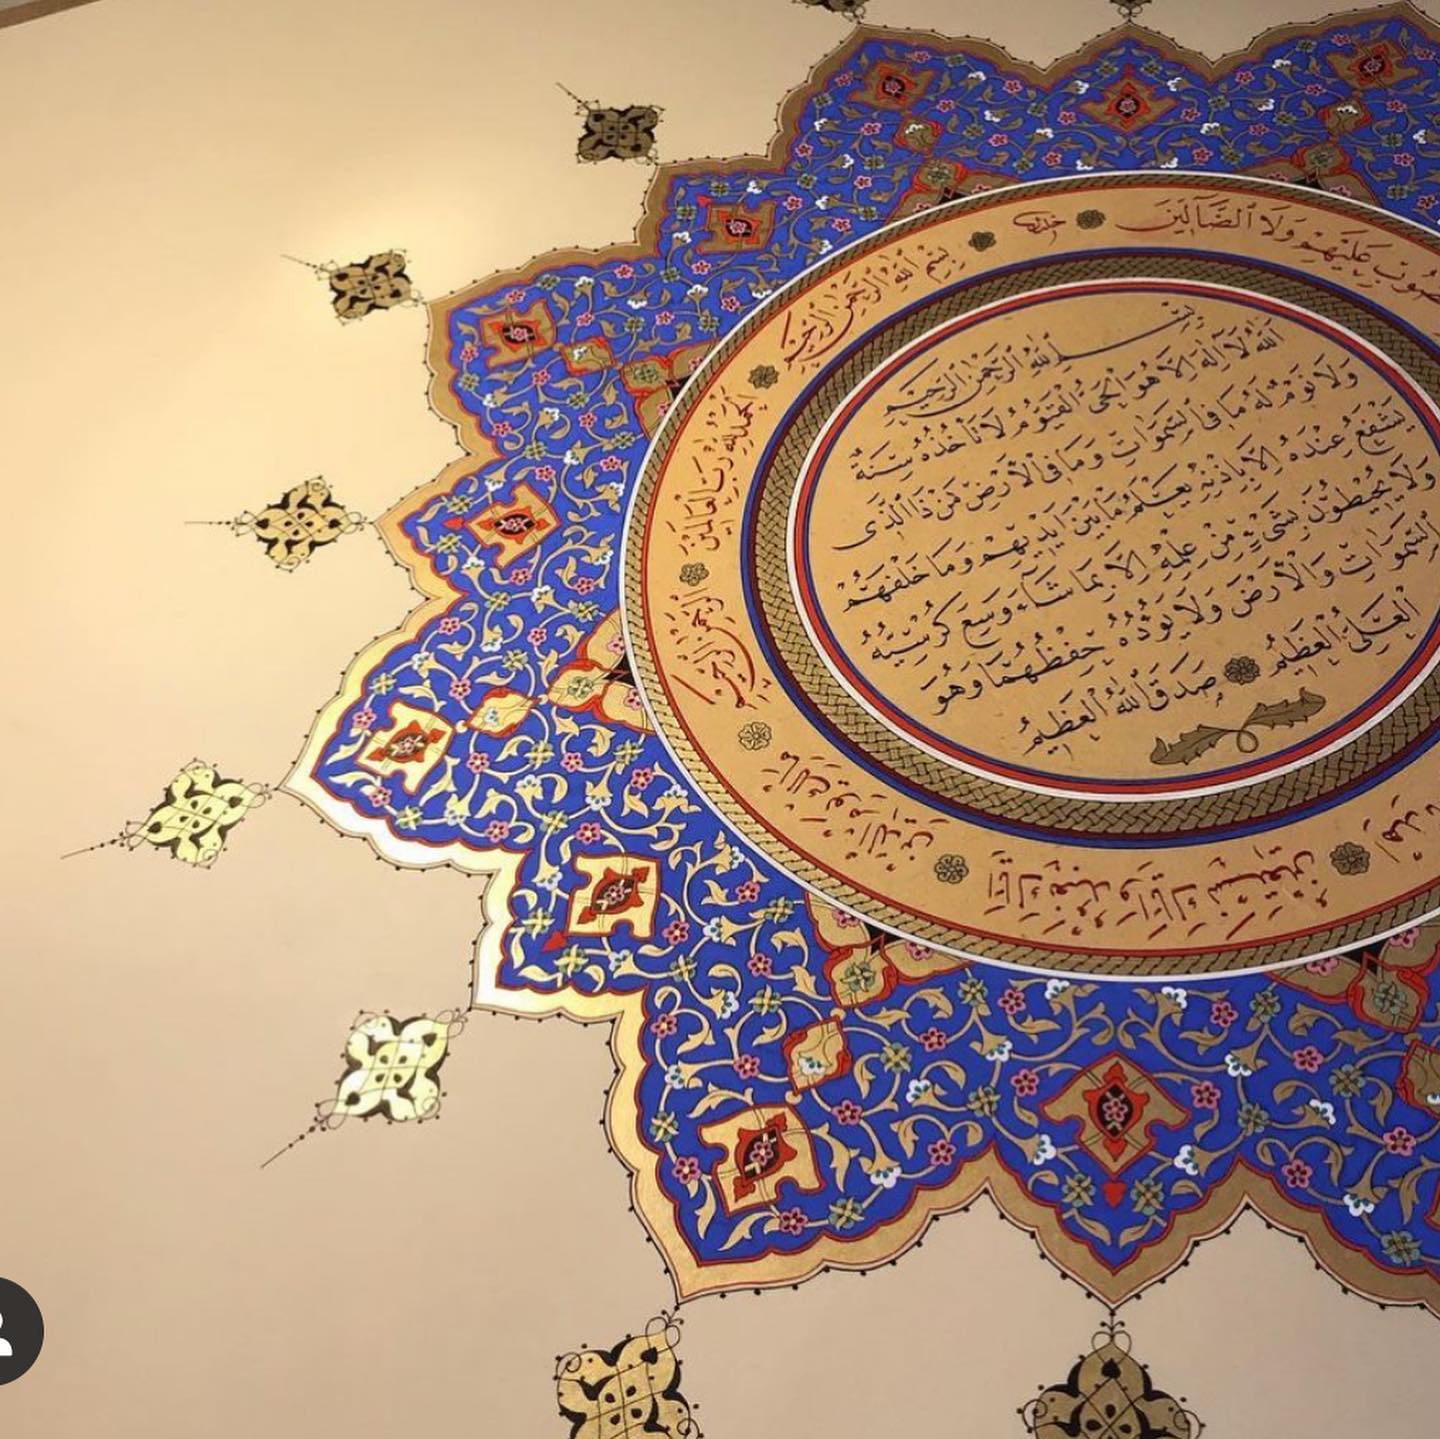 بِسْمِ اللّٰهِ الرَّحْمٰنِ الرَّحِيمِ
اَللّٰهُ لَا اِلٰهَ اِلَّا هُوَ اَلْحَىُّ الْقَيُّومُ لَا تَأْخُذُهُ سِنَةٌ
وَلَا نَوْمٌ لَهُ مَا فِى السَّمٰوَاتِ وَمَا فِى الْاَرْضِ مَنْ ذَا الَّذِى
يَشْفَعُ عِنْدَهُ اِلَّا بِاِذْنِهِ يَعْلَمُ مَا بَيْنَ اَيْدِيهِمْ وَمَا خَلْفَهُمْ
وَلَا يُحِيطُونَ بِشَىْءٍ مِنْ عِلْمِهِ اِلَّا بِمَا شَاءَ وَسِعَ كُرْسِيُّهُ
السَّمٰوَاتِ وَالْاَرْضَ وَلَا يَؤُدُهُ حِفْظُهُمَا وَهُوَ
الْعَلِىُّ الْعَظِيمُ صَدَقَ اللّٰهُ الْعَظِيمُ
بِسْمِ اللّٰهِ الرَّحْمٰنِ الرَّحِيمِ
اَلْحَمْدُ لِلّٰهِ رَبِّ الْعَالَمِينَ
اَلرَّحْمٰنِ الرَّحِيمِ
مَالِكِ يَوْمِ الدِّينِ
اِيَّاكَ نَعْبُدُ وَاِيَّاكَ نَسْتَعِينُ
عَلَيْهِمْ وَلَا الضَّالِّينَ